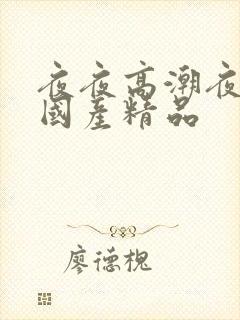 夜夜高潮夜
國產精品
廖德槐